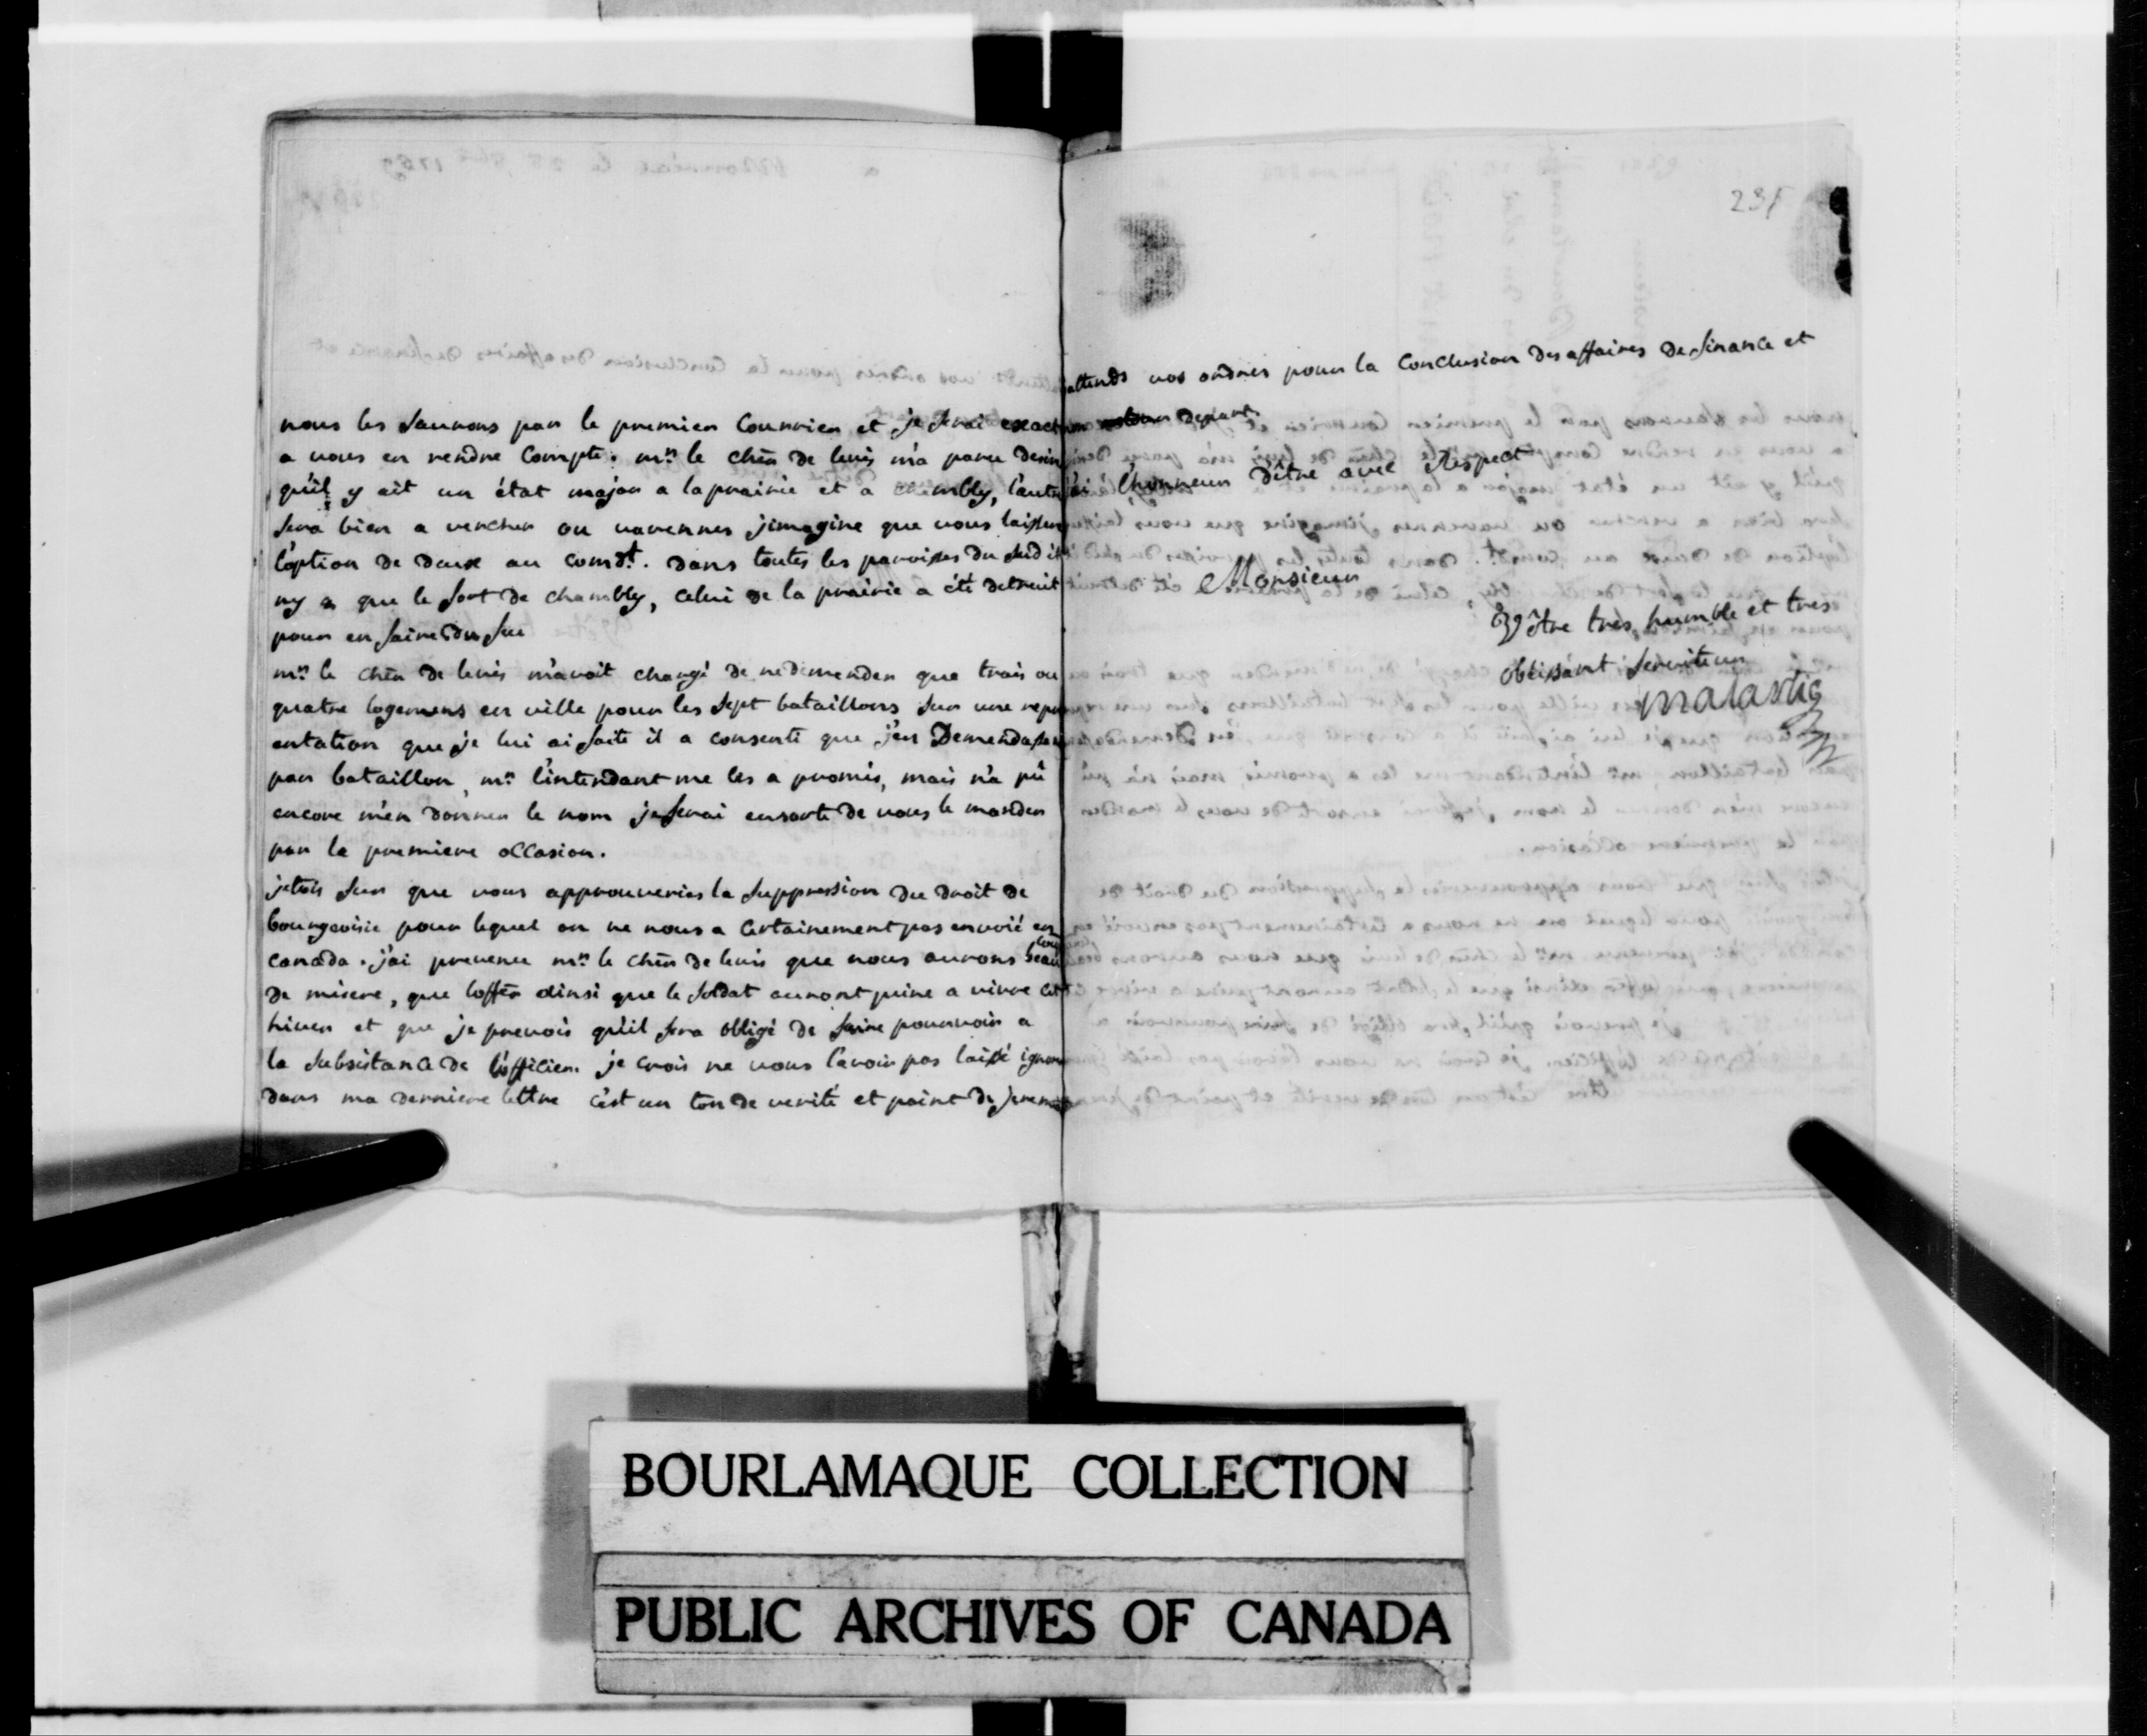 nous les saurons par le premier Courrier et je serai exact
a vous en rendre Compte. mr. le cher de levis m'a paru desirer
qu'il y ait un état major a la prairie et a chambly, l'autre
sera bien a vercher ou varennes jimagine que vous laisser
l'option de deux au comdt. dans toutes les paroisses du sud il
ny a que le fort de chambly, celui de la prairie a été detruit
pour en faire du feu
mr le cher de levis m'avoit chargé de ne demender que trois ou
quatre logemens en ville pour les sept bataillons sur une repres
entation que je lui ai faite il a consenti que j'en Demendasse
par bataillon, mr l'intendant me les a promis, mais n'a pû
encore m'en donner le nom je ferai ensorte de vous le mander
par la premiere occasion.
jetois sur que vous approuveries la suppression du droit de
bourgeoisie pour lequel on ne nous a certainement pas envoié en
canada. j'ai prevenu mr le cher de levis que nous aurons beaucoup
de misere, que loffer ainsi que le soldat auront peine a vivre cet
hiver et que je prevois qu'il sera obligé de faire pourvoir a
la subsistance de l'officier. je crois ne vous l'avoir pas laissé ignorer
dans ma derniere lettre c'est un ton de verité et point de
231
attends vos ordres pour la Conclusion des affaires de finance et
depart
j'ai l'honneur d'être avec Respect
Monsieur
Vôtre tres humble et tres
obeissant serviteur
malartic
BOURLAMAQUE COLLECTION
PUBLIC ARCHIVES OF CANADA